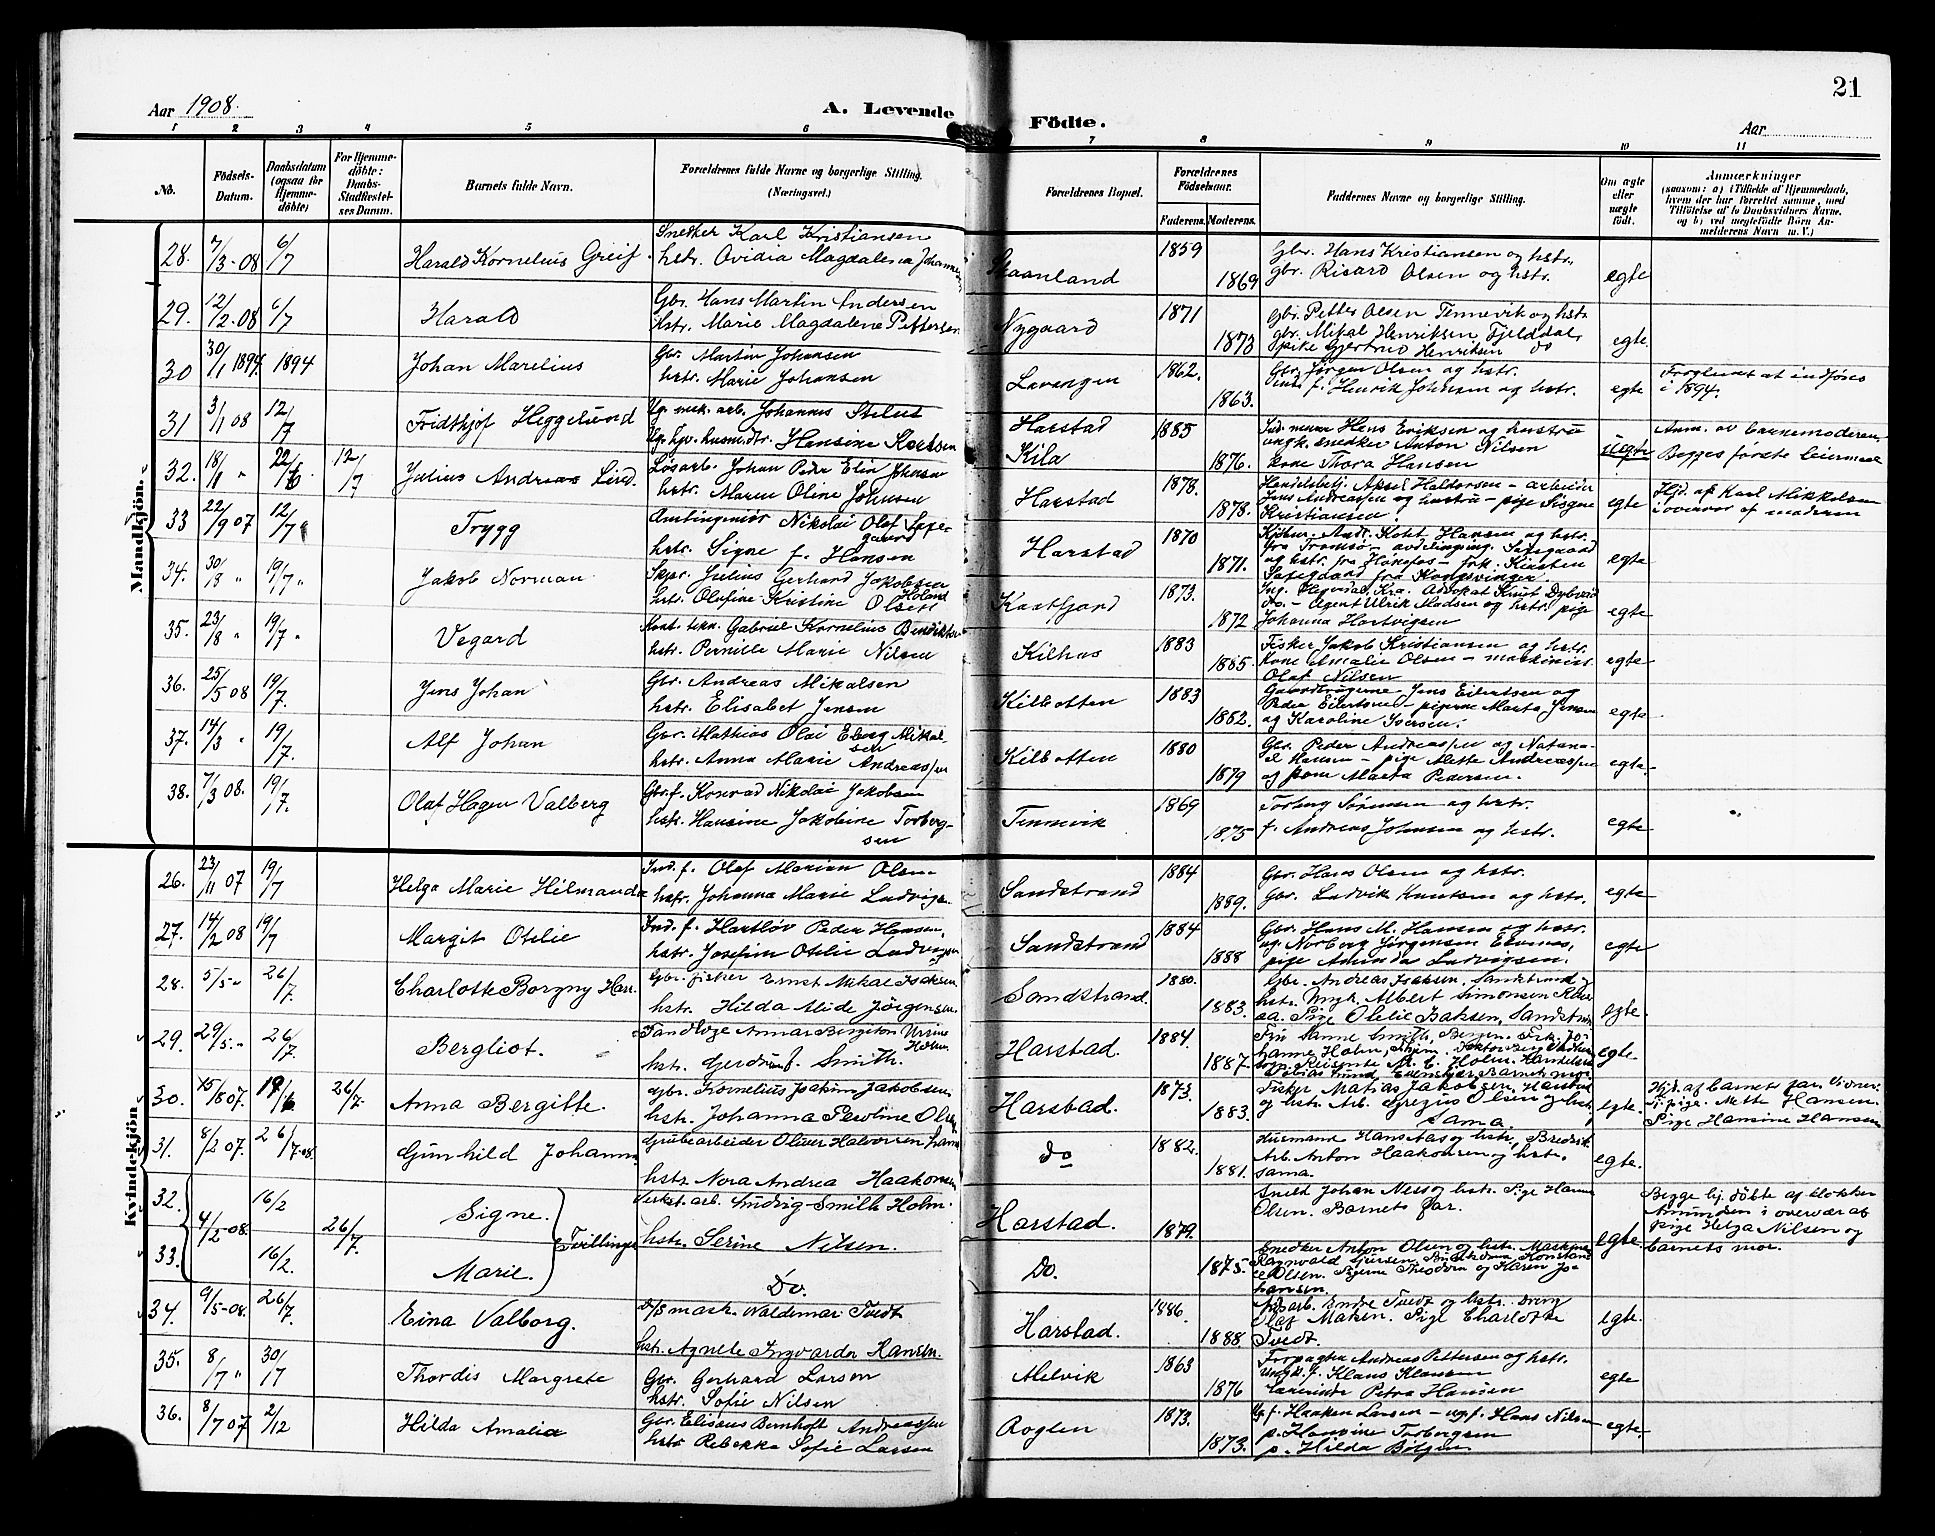 21
Aar 1908.
A. Levende
Födte.
Aar
1 2 3 4 5 6 7 8 9 10 11
No.
Födsels-
Datum.
Daabsdatum
(ogsaa for
Hjemme-
döbte)
For Hjemme-
döbte:
Daabs-
Stadfæstel-
ses Datum.
Barnets fulde Navn.
Forældrenes fulde Navne og borgerlige Stilling.
(Næringsvei.)
Forældrenes Bopæl.
Forældrenes
Födselsaar.
Faderens.
Moderens.
Faddernes Navne og borgerlige Stilling.
Om ægte
eller
uægte
födt.
Anmærkninger
(saasom: a) i Tilfælde af Hjemmedaab,
hvem der har forrettet samme, med
Tilföielse af to Daabsvidners Navne.
og b) ved uægtefödte Börn An-
melderens Navn m. V.)
Mandkjön.
28. 7/3-08 6/7 Harald Kornelius Greif.
Snedker Karl Kristiansen
hstr. Ovidia Magdalena
Skaanland 1859 1869
Gbr. Hans Kristiansen og hstr.,
gbr. Risard Olsen og hstr.
egte
29. 12/2-08 6/7 Harald
Gbr. Hans Martin Andersen
hstr. Marie Magdalene Pettersen
Nygaard 1871 1873
gbr. Petter Olsen Tennevik og hstr
gbr. Mikal Henriksen Fjelddal,
pike Gjertrud Henriksen do
egte.
30 30/1 1894. 1894 Johan Marelius
Gbr. Martin Johansen
hstr. Marie Johansen
Lavangen 1862. 1863.
Gbr. Jørgen Olsen og hstr.
Ind. f. Henrik Johnsen og hstr.
egte
Forglemt at indføres
i 1894.
31 3/1 08 12/7 Fridthjof Heggelund
Ug. mek. arb. Johannes
Hansine
Harstad
Kila 1885 1876.
Hans Eriksen og hustru
ungk. snedker Anton Nilsen
kone Thora Hansen
uegte
Anm. av barnemoderen.
Begges første leiermaal
32. 18/1 " 22/6. 12/7 Julius Andreas
Løsarb. Johan Peder Elin Johnsen
hstr. Maren Oline Johnsen
Harstad 1878. 1878.
Handelsbetj. Aksel Haltorsen - arbeider
Jens Andreassen og hustru - pige Signe
Kristiansen
egte
Hjd. af Karl Mikkelsen
i overvær af moderen
33 22/9 07 12/7 Trygg
Amtingeniør Nikolai Olaf
hstr. Signe f. Hansen
Harstad 1870 1871.
Kjøbm. Andr. Hansen og hstr.
fra Tromsø - avdelingsing. Saxegaard
og hstr. fra Hønefos - frk. Kirsten
Saxegaard fra Kongsvinger.
egte
34. 30/8 " 19/7 " Jakob Norman
Skpr. Julius Gerhard Jakobsen
hstr. Olefine Kristine Olsen
Kastfjord 1873. 1872
Ing. Hegerdal, Kra. Advokat Knut Dybvad
do. - Agent Ulrik Madsen og hstr. pige
Johanna Hartvigsen
egte
35. 23/8 " 19/7 " Vegard
Gabriel Kornelius
hstr. Pernille Marie Nilsen
Kilhus 1883 1885.
Fisker Jakob Kristiansen og hstr.
Kone Amalie Olsen - maskinist
Olaf Nilsen
egte
36. 25/5 08 19/7. Jens Johan
Gbr. Andreas Mikalsen
hstr. Elisabet Jensen
Kilbotten 1883 1882.
Gaardbrugerne Jens Eilertsen og
Peder Eilertsen - pigerne Marta Jensen
og Karoline Iversen.
egte.
37. 14/3 " 19/7. Alf Johan
Gbr. Mathias Olai Eberg Mikal-
sen
hstr. Anna Marie Andreassen
Kilbotten 1880 1879
Gbr. Peder Andreassen og Natana-
el Hansen - pige Mette Andreassen
og kone Marta Pedersen.
egte.
38. 7/3 08. 19/7. Olaf Hagen Valberg
Gbr. f. Konrad Nikolai Jakobsen
hstr. Hansine Jakobine Torberg-
sen
Tennevik 1869 1875
Torberg Sørensen og hstr.
f. Andreas Johnsen og hstr.
egte
Kvindekjön
26. 23/11 07 19/7 Helga Marie Hilmanda
Ind. f. Olaf Marian Olsen
hstr. Johanna Marie
Sandstrand 1884 1889.
Gbr. Hans Olsen og hstr.
Gbr. Ludvik Knutsen og hstr.
egte
27. 14/2 08 19/7 Margit Otelie
Ind. f. Hartløv Peder Hansen,
hstr. Josefine Otelie Ludvigsen
Sandstrand 1884 1888
Gbr. Hans M. Hansen og hstr.
ug. Norberg Jørgensen Evenes,
pige Aminda Ludvigsen.
egte
28. 5/5-" 26/7. Charlotte Borgny
Gbr. fisker Ernst Mikal Isaksen
hstr. Hilda Alide Jørgensen
Sandstrand. 1880. 1883.
Gbr. Andreas Isaksen, Sandstrand og
hstr. Ungk. Albert Simonsen
Pige Otelie Isaksen, Sandstrand
egte.
29. 29/5.- 26/7. Bergliot.
hstr. Gerdrun f. Smith.
Harstad. 1884. 1887.
egte.
30. 15/8 07. 19/6 26/7. Anna Bergitte.
Gbr. Kornelius Joakim Jakobsen
hstr. Johanna Peroline Olsen
Harstad. 1873. 1883.
Fisker Matias Jakobsen, Harstad
og hstr. Arb. Gregus Olsen og hstr,
sama.
egte.
Hjd. af barnets far. Vidner:
Pige Mette Hansen.
Pige Hansine Hansen
31. 8/2 07. 26/7-08. Gunhild Johanne
Grubearbeider Oliver Halvorsen
hstr. Nora Andrea Haakonsen
Do 1882. 1881.
Husmand Hans Aas og hstr,
Arb. Anton Haakonsen og hstr.
sama.
egte.
32. 4/2-08. 16/2 26/7. Signe. } Tvillinger
arb. Ludvig Smith Holm.
hstr. Serine Nilsen.
Harstad. 1879.
Johan Ness og hstr. Pige Hanna
Olsen. Barnets far.
egte.
Begge hj. døbte af klokker
Amundsen i overvær af
pige Helga Nilsen og
barnets mor.
33. 16/2. Marie.
Do.
Do. 1875.
Snedker Anton Olsen og hstr.
Olsen. Pigerne Theodora og Karen Jo-
hansen.
34. 9/5-08. 26/7. Eina Valborg.
D/S mask. Waldemar Tvedt
hstr. Agnete Ingvarda Hansen.
Harstad. 1886. 1888
arb. Endre Tvedt og hstr.
Olaf Matsen. Pige Charlotte
Tvedt.
egte.
35. 8/7 " 30/7 Thordis Margrete
Gbr. Gerhard Larsen
hstr. Sofie Nilsen
Melvik 1863 1876
Andreas Pettersen og hstr.
ungk. f. Klaus Klausen
Petra Hansen
egte
36. 8/7 07 2/12 Hilda Amalie
Gbr. Elisæus Bernhoft Andreassen
hstr. Rebekka Sofie Larsen
Roglen 1873. 1873.
Ug. f. Haaken Larsen - ug. f. Hans Nilsen
p. Hansine Torbergsen
p. Hilda
egte.